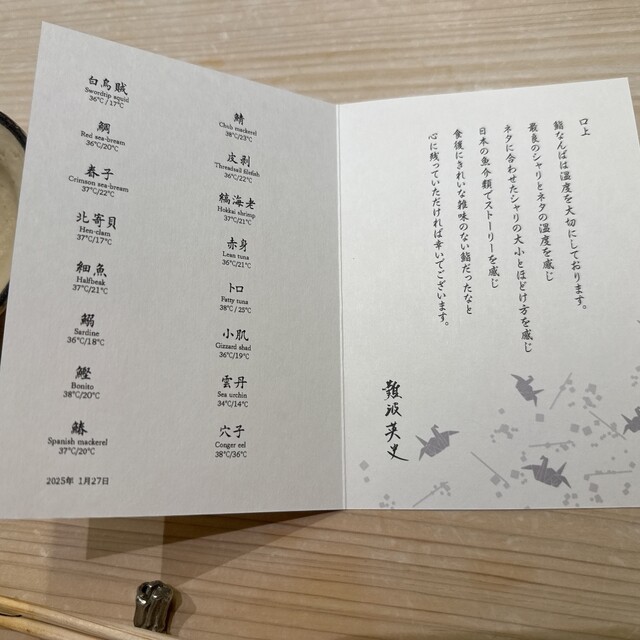 白烏賊
Swordtip squid
36℃/17℃
鯛
Red sea-bream
36℃/20℃
春子
Crimson sea-bream
37℃/22℃
北寄貝
Hen-clam
37℃/17℃
細魚
Halfbeak
37℃/21℃
鰯
Sardine
36℃/18℃
鰹
Bonito
38℃/20℃
鰆
Spanish mackerel
37℃/20℃
2025年 1月27日
鯖
Chub mackerel
38℃/23℃
皮剥
Threadsail filefish
36℃/22℃
縞海老
Hokkai shrimp
37℃/21℃
赤身
Lean tuna
36℃/21℃
トロ
Fatty tuna
38℃/25℃
小肌
Gizzard shad
36℃/19℃
雲丹
Sea urchin
34℃/14℃
穴子
Conger eel
38℃/36℃
口上
鮨なんばは温度を大切にしております。
最良のシャリとネタの温度を感じ
ネタに合わせたシャリの大小とほどけ方を感じ
日本の魚介類でストーリーを感じ
食後にきれいな雑味のない鮨だったなと
心に残っていただければ幸いでございます。
難波英史